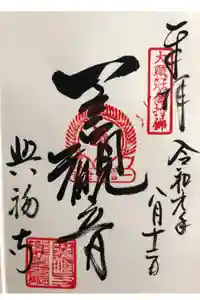 奉拝
令和元年
八月十二日
一言観音
興福寺